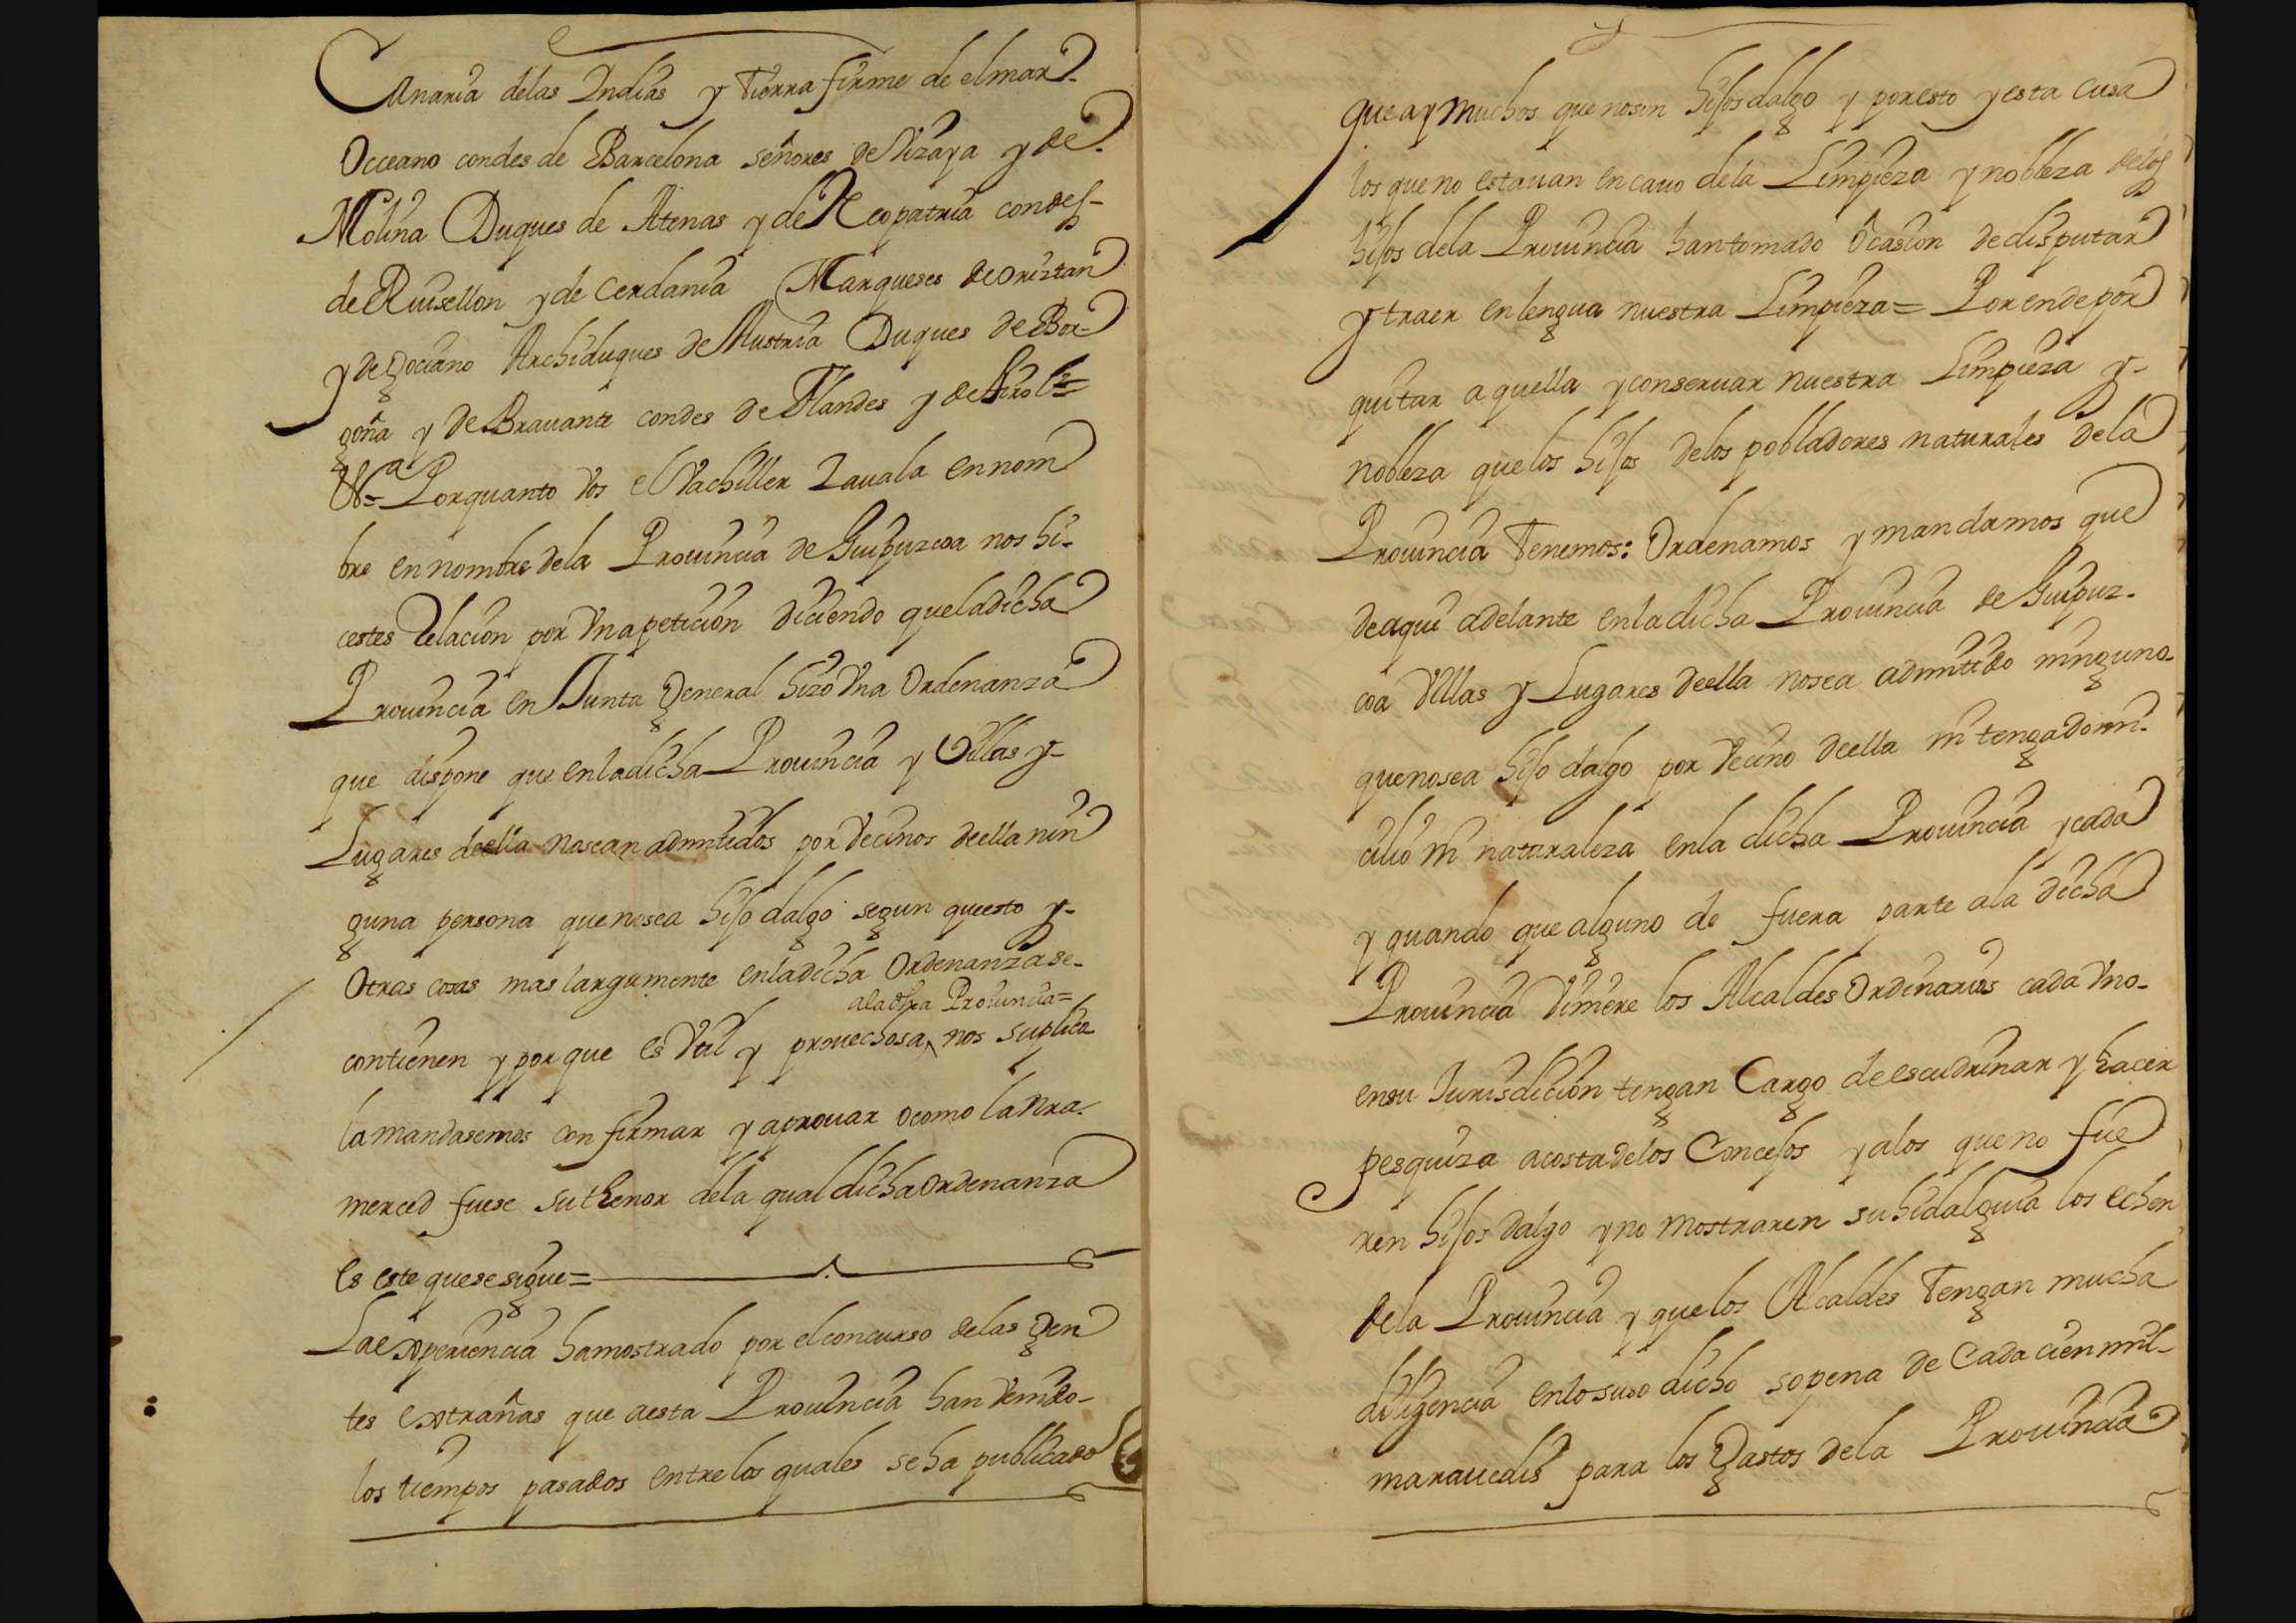 Canaria delas Indias y Tierra firme de el mar
Occeano condes de Barcelona señores de Vizaya y de
Molina Duques de Atenas y de Neopatria condes
de Ruisellon y de Cerdania Marqueses de oriztan
y de gociano Archiduques de Austria Duques de Bor
goña y de Bravante condes de Flandes y de Tirol &ª=
Porquanto vos el Vachiller Zavala en nom
bre en nombre dela Provincia de Guipuzcoa nos hi-
cestes Relacion por Vna petición diciendo que la dicha
Provincia en Junta General hizo Vna Ordenanza
que dispone que en la dicha Provincia y Villas y-
Lugares deella no sean admitidos por Vecinos deella nin
guna persona que no sea hijo dalgo segun que esto y-
Otras cosas mas largamente en la dicha Ordenanza se-
ala dha Provincia=
contienen y por que es Vtil y provechosa, nos suplica
la mandasemos confirmar y aprovar o como la nra.
merced fuese su thenor dela qual dicha Ordenanza
es este que se sigue=
La experiencia ha mostrado por el concurso delas Gen
tes extrañas que aesta Provincia han Venido-
los tiempos pasados entre los quales se ha publicado
que ay muchos que no son hijos dalgo y por esto y esta cusa
los que no estavan en cavo dela Limpieza y nobleza delos
hijos dela Provincia han tomado Ocasion de disputar
y traer en lengua nuestra Limpieza= Por ende por
quitar aquella y conservar nuestra Limpieza y-
nobleza que los hijos delos pobladores naturales dela
Provincia Tenemos: Ordenamos y mandamos que
de aqui adelante en la dicha Provincia de Guipuz-
coa Villas y Lugares deella no sea admitido ninguno-
que no sea hijo dalgo por Vecino deella ni tenga domi-
cilio ni naturaleza en la dicha Provincia y cada
y quando que alguno de fuera parte ala dicha
Provincia Viniere los Alcaldes Ordinarios cada Vno-
en su Jurisdicion tengan Cargo de escudrinar y hacer
pesquiza acosta delos Concejos y alos que no fue
ren hijos dalgo y no mostraren su hidalguia los echen
dela Provincia y que los Alcaldes Tengan mucha
diligencia en lo suso dicho so pena de Cada cien mil-
maravedis para los Gastos dela Provincia